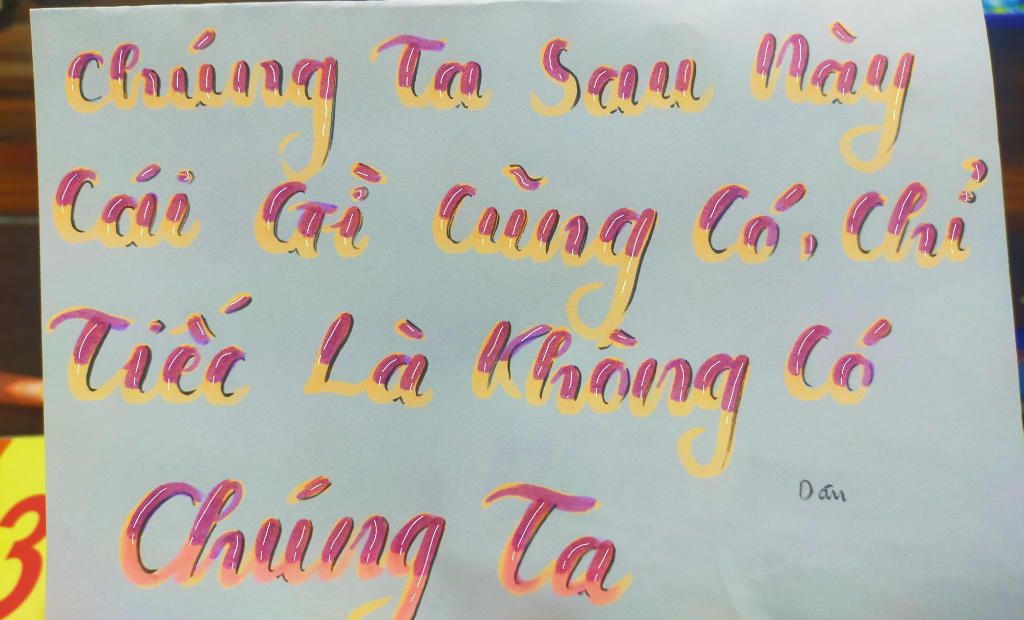 Chúng Ta Sau Này
Cái Gì Cũng Có, Chỉ
Tiếc Là Không Có
Chúng Ta
Dấu
3